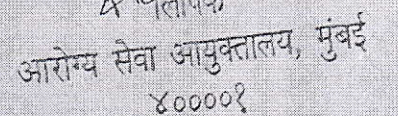 आरोग्य सेवा आयुक्तालय, मुंबई
४००००१